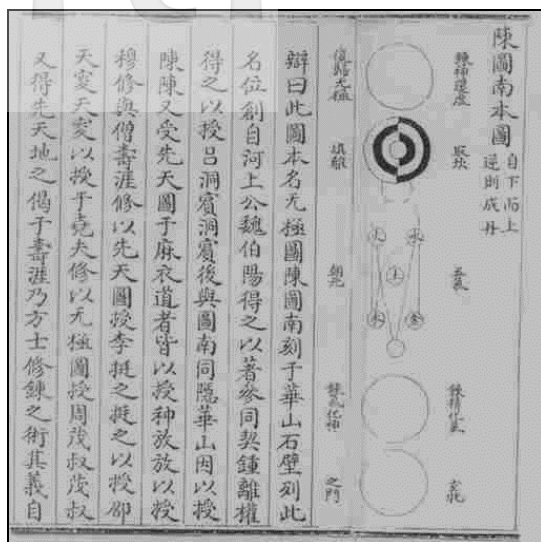 陳圖南本圖
自下而上
逆則成丹
煉神還虛
復歸无極
取坎
填離
五氣
朝元
火
水
土
木
金
鍊精化氣
鍊氣化神
玄牝
之門
辯曰此圖本名无極圖陳圖南刻于華山石壁列此
名位創自河上公魏伯陽得之以著參同契鍾離權
得之以授呂洞賓洞賓後與圖南同隱華山因以授
陳陳又受先天圖于麻衣道者皆以授种放放以授
穆修與僧壽涯修以先天圖授李挺之挺之以授邵
天叟天叟以授于堯夫修以无極圖授周茂叔茂叔
又得先天地之偈于壽涯乃方士修鍊之術其義自